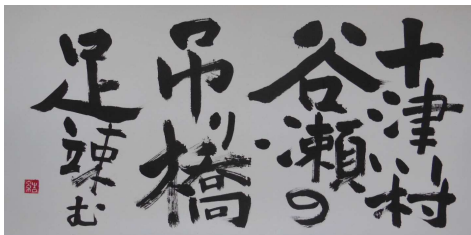 十津村
谷瀬の
吊り橋
足竦む